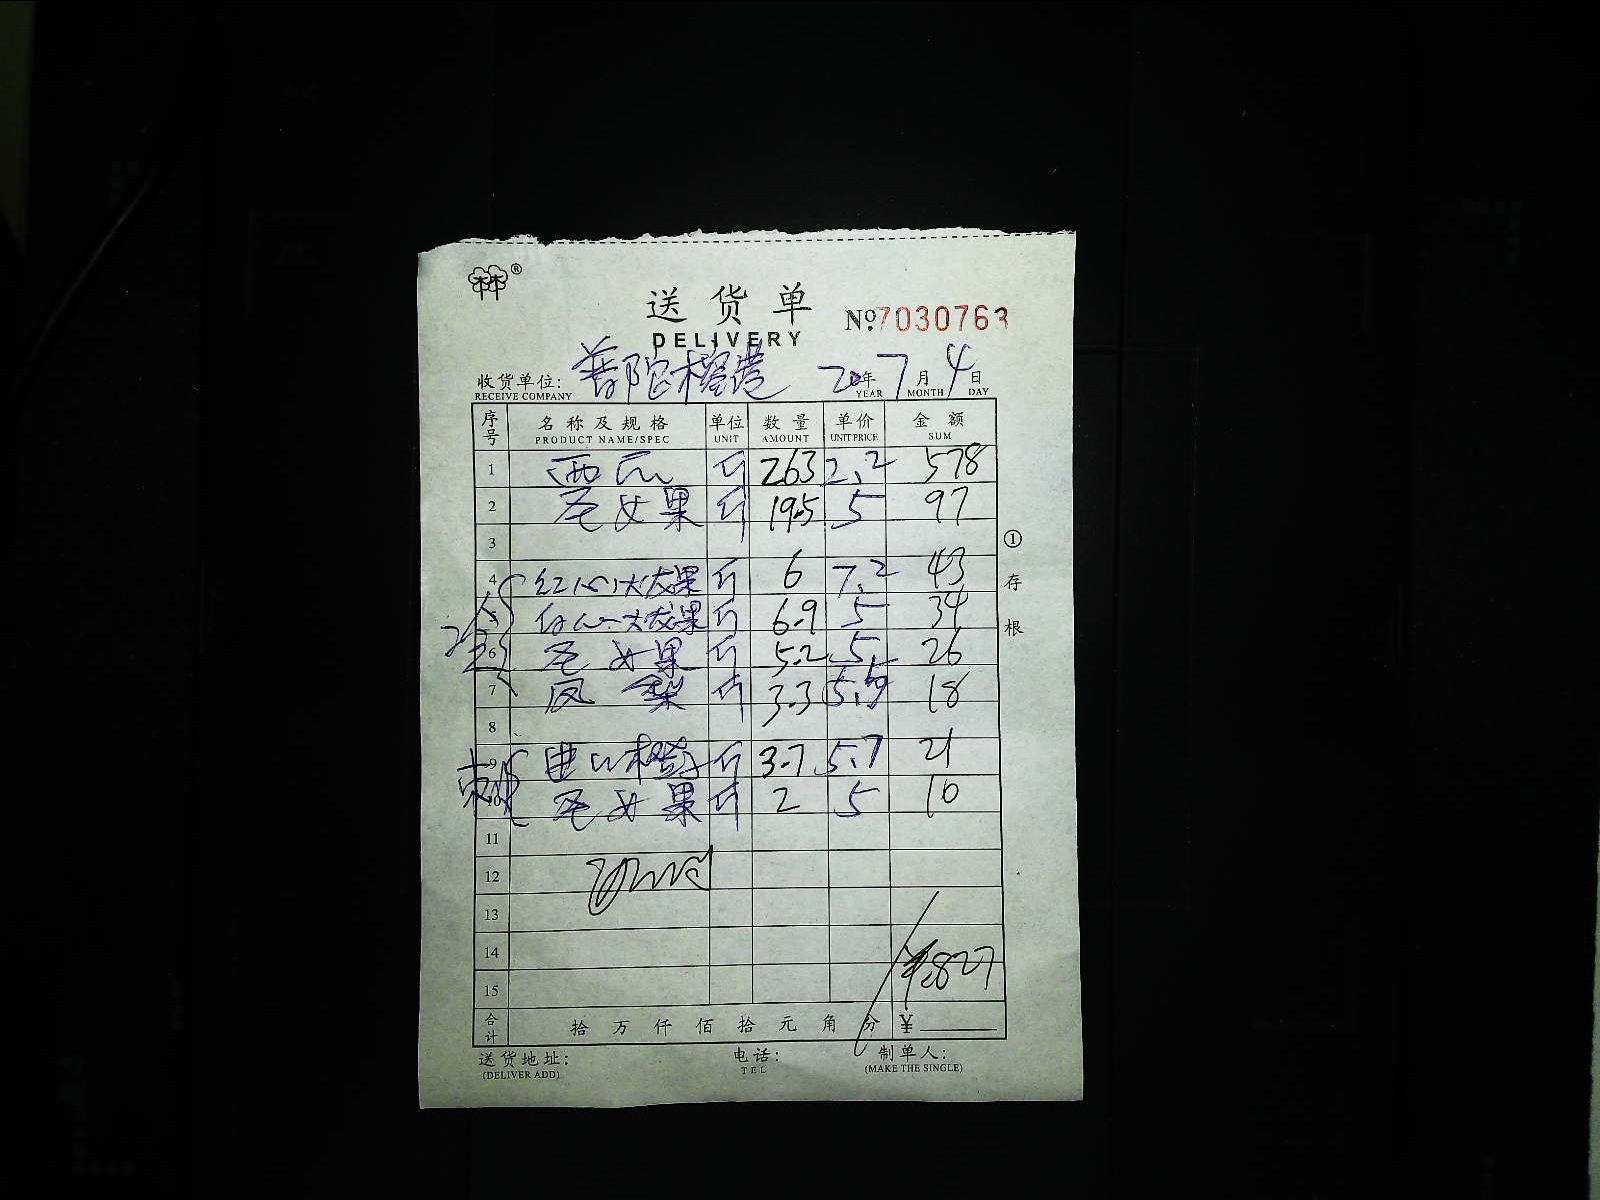 送货单
No.7030763
DELIVERY
收货单位: 普陀
RECEIVE COMPANY
20年 7月 4日
YEAR MONTH DAY
序号 名称及规格 单位 数量 单价 金额
PRODUCT NAME/SPEC UNIT AMOUNT UNIT PRICE SUM
1 西瓜 斤 263 2.2 578
2 毛女果 斤 19.5 5 97
3
4 红心火龙果 斤 6 7.2 43
5 白心火龙果 斤 6.9 5 34
6 毛女果 斤 5.2 5 26
7 凤梨 斤 3.3 5.5 18
8
9 斤 3.7 5.7 21
10 毛女果 斤 2 5 10
11
12
13
14 ¥827
15
合计 拾 万 仟 佰 拾 元 角 分 ¥
送货地址: 电话: 制单人:
(DELIVER ADD) TEL (MAKE THE SINGLE)
①存根